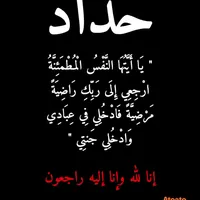 حداد
" يَا أَيَّتُهَا النَّفْسُ الْمُطْمَئِنَّةُ
ارْجِعِي إِلَى رَبِّكِ رَاضِيَةً
مَرْضِيَّةً فَادْخُلِي فِي عِبَادِي
وَادْخُلِي جَنَّتِي "
إنا لله وإنا إليه راجعون